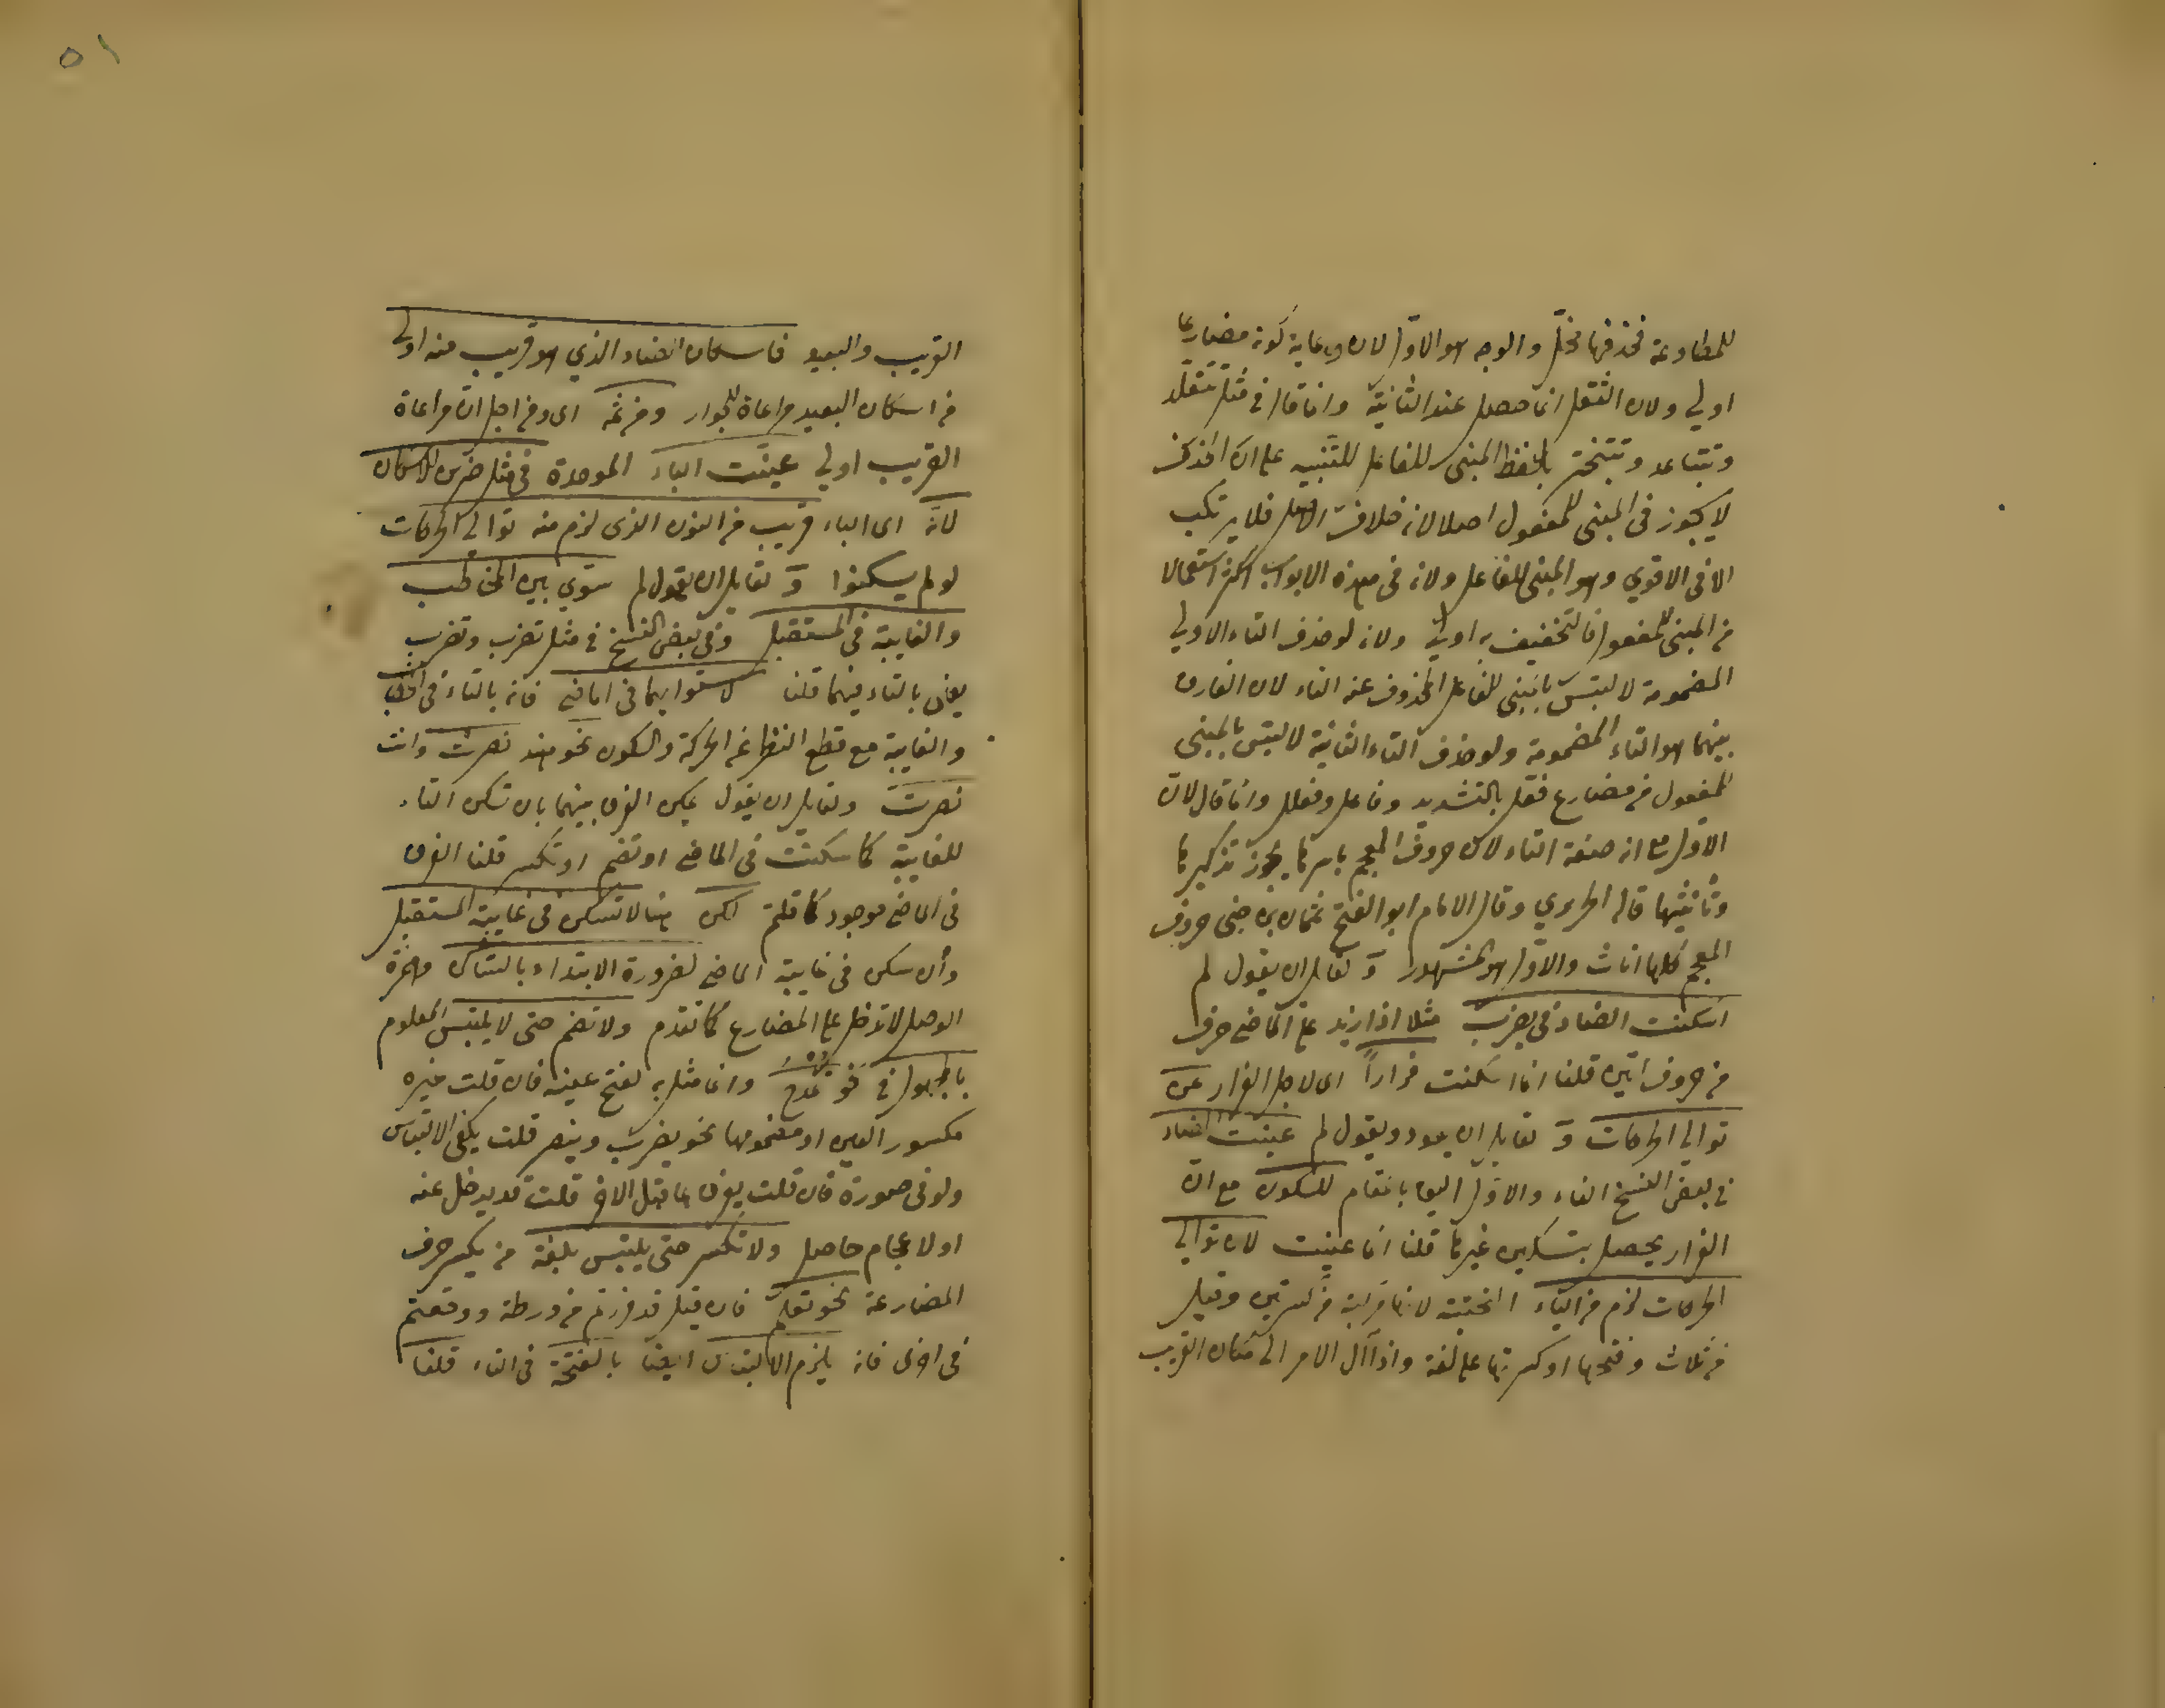 للمطاوعة فحذفها مخلّ والوجه هو الاوّل لان رعاية كونه مضارعا
اولى ولان الثقل انما حصل عند الثانية وانما قال في مثل تتقلد
وتتباعد وتتبختر بلفظ المبنى للفاعل للتنبيه على ان الحذف
لا يجوز في المبنى للمفعول اصلا لانه خلاف الاصل فلا يرتكب
الا في الاقوي وهو المبنى للفاعل ولانه في هذه الابواب اكثر استعمالا
من المبنى للمفعول فالتخفيف به اولى ولانه لو حذف التاء الاولى
المضمومة لالتبس بالمبنى للفاعل المحذوف عنه التاء لان الفارق
بينهما هو التاء المضمومة ولو حذف التاء الثانية لالتبس بالمبنى
للمفعول من مضارع فعّل بالتشديد وفاعل وفعلل وانما قال لان
الاول مع انه صفة التاء لان حروف المعجم باسرها يجوز تذكيرها
وتأنيثها قاله الحريري وقال الامام ابو الفتح عثمان بن جنى حروف
المعجم كلها اناث والاوّل هو المشهور و لقائل ان يقول لم
اسكنت الضاد في يضرب مثلا اذا زيد على الماضي حرف
من حروف اتين قلنا انما اسكنت فراراً اى لاجل الفرار عن
توالى الحركات و لقائل ان يعود ويقول لم عينت الضاد
في بعض النسخ الفاء والاوّل اليق بالمقام للسكون مع ان
الفرار يحصل بتسكين غيرها قلنا انما عينت لان توالى
الحركات لزم من الياء التحتية لانها مركبة من كسرتين وقيل
من ثلاث وفتحها او كسرتها على لغة واذا آل الامر الى مكان القريب
٥١
القريب والبعيد فاسكان الضاد الذي هو قريب منه اولى
من اسكان البعيد مراعاة للجوار ومن ثمه اى ومن اجل ان مراعاة
القريب اولى عينت الباء الموحدة في مثل ضربن للاسكان
لانه اى الباء قريب من النون الذى لزم منه توالى الحركات
لو لم يسكنوا و لقائل ان يقول لم سوّي بين المخاطب
والغايبة في المستقبل وفي بعض النسخ في مثل تضرب وتضرب
يعنى بالتاء فيهما قلنا لاستوايهما في الماضى فانه بالتاء في المخاطب
والغايبة مع قطع النظر عن الحركة والسكون نحو هند نصرت وانت
نصرت ولقائل ان يقول يمكن الفرق بينهما بان تسكن التاء
للغايبة كما سكنت في الماضي او تضم او تكسر قلنا الفرق
في الماضي موجود كما قلتم لكن هنا لا تسكن في غايبة المستقبل
وأن سكن في غايبة الماضي لضرورة الابتداء بالساكن وهمزة
الوصل لا تدخل على المضارع كما تقدم ولا تضم حتى لا يلتبس المعلوم
بالمجهول في نحو تمدح وانما مثل به لفتح عينه فان قلت غيره
مكسور العين او مضمومها نحو يضرب وينصر قلت يكفى الالتباس
ولو في صورة فان قلت يفرق بما قبل الاخر قلت قد يدخل عنه
اولا عجام حاصل ولا تكسر حتى يلتبس بلغة من يكسر حرف
المضارعة نحو تعلم فان قيل قد فررتم من ورطة ووقعتم
في اخرى فانه يلزم الالتباس ايضا بالفتحة في التاء قلنا